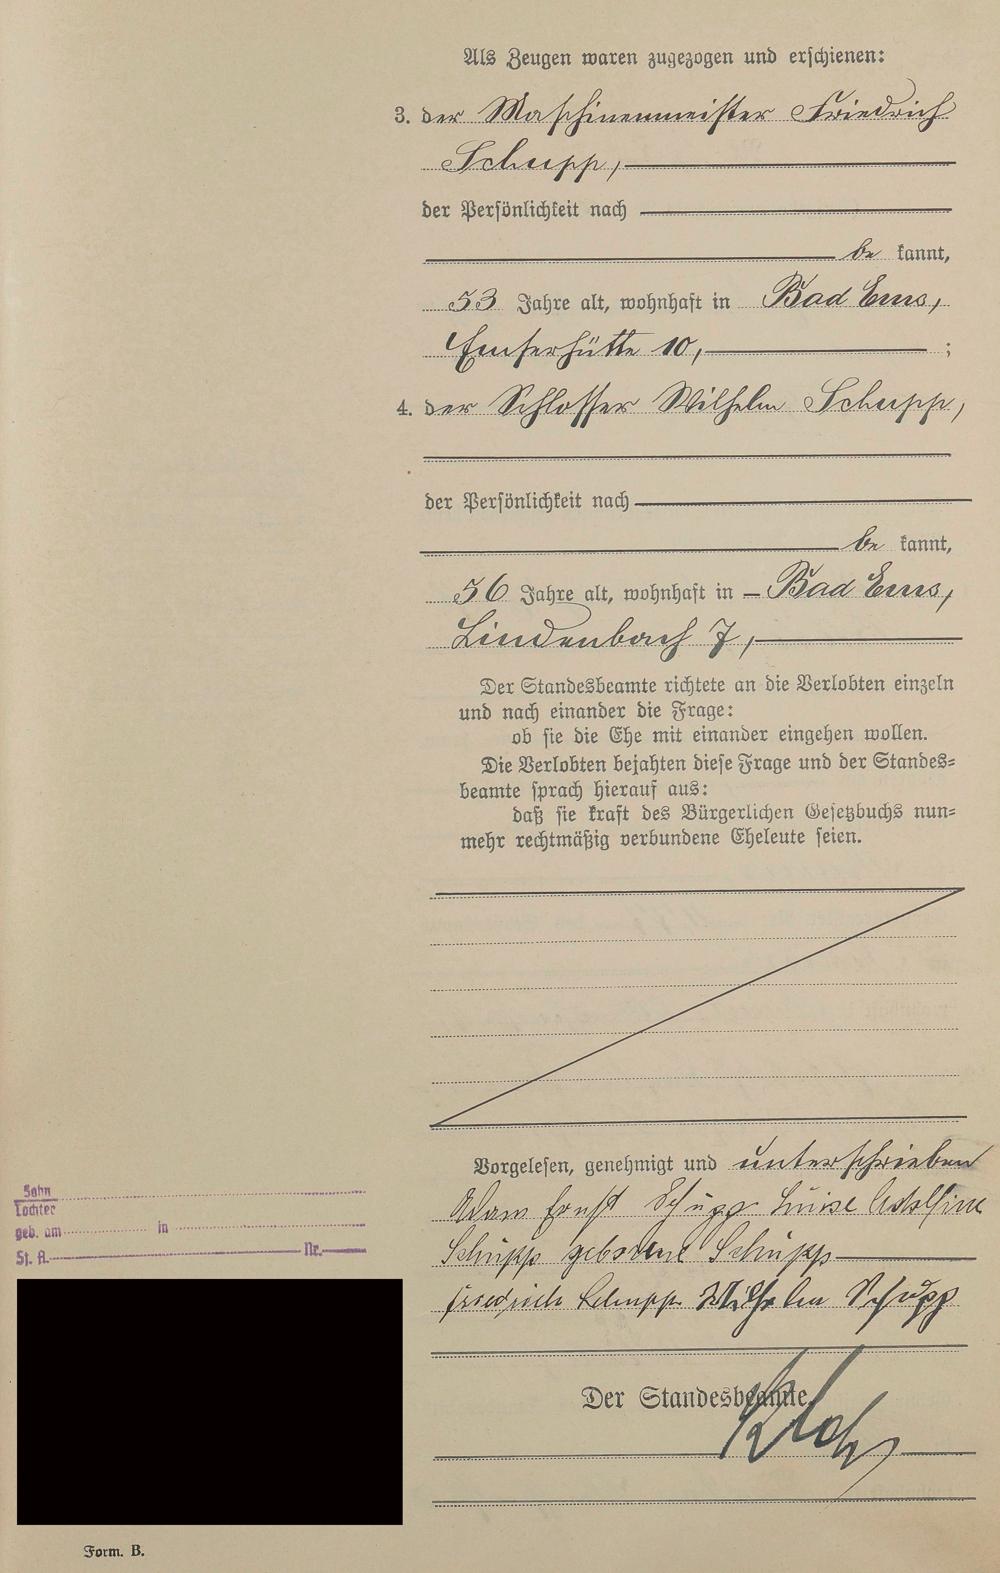 Als Zeugen waren zugezogen und erschienen:
3. der Maschinenmeister Friedrich
Schupp,
der Persönlichkeit nach
be kannt,
53 Jahre alt, wohnhaft in Bad Ems,
Emserhütte 10, ;
4. der Schlosser Wilhelm Schupp,
der Persönlichkeit nach
be kannt,
56 Jahre alt, wohnhaft in Bad Ems,
Lindenbach 7,
Der Standesbeamte richtete an die Verlobten einzeln
und nach einander die Frage:
ob sie die Ehe mit einander eingehen wollen.
Die Verlobten bejahten diese Frage und der Standes=
beamte sprach hierauf aus:
daß sie kraft des Bürgerlichen Gesetzbuchs nun=
mehr rechtmäßig verbundene Eheleute seien.
Vorgelesen, genehmigt und unterschrieben
Adam Ernst Schupp Luise Adolfine
Schupp geborene Schupp
Friedrich Schupp Wilhelm Schupp
Der Standesbeamte.
Sohn
Tochter
geb. am in
St. A. Nr.
Form. B.